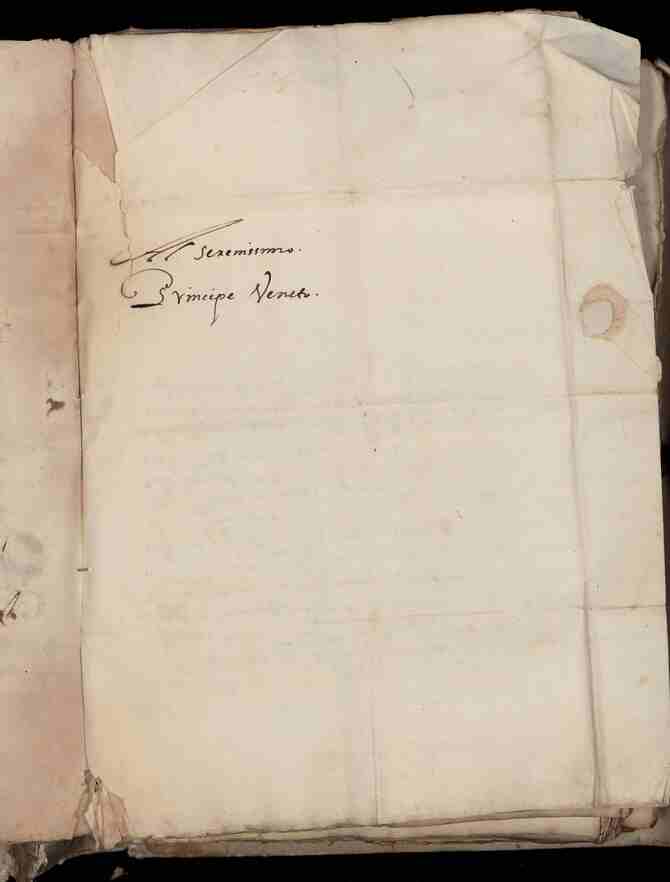 Al serenissimo.
Principe Veneto.